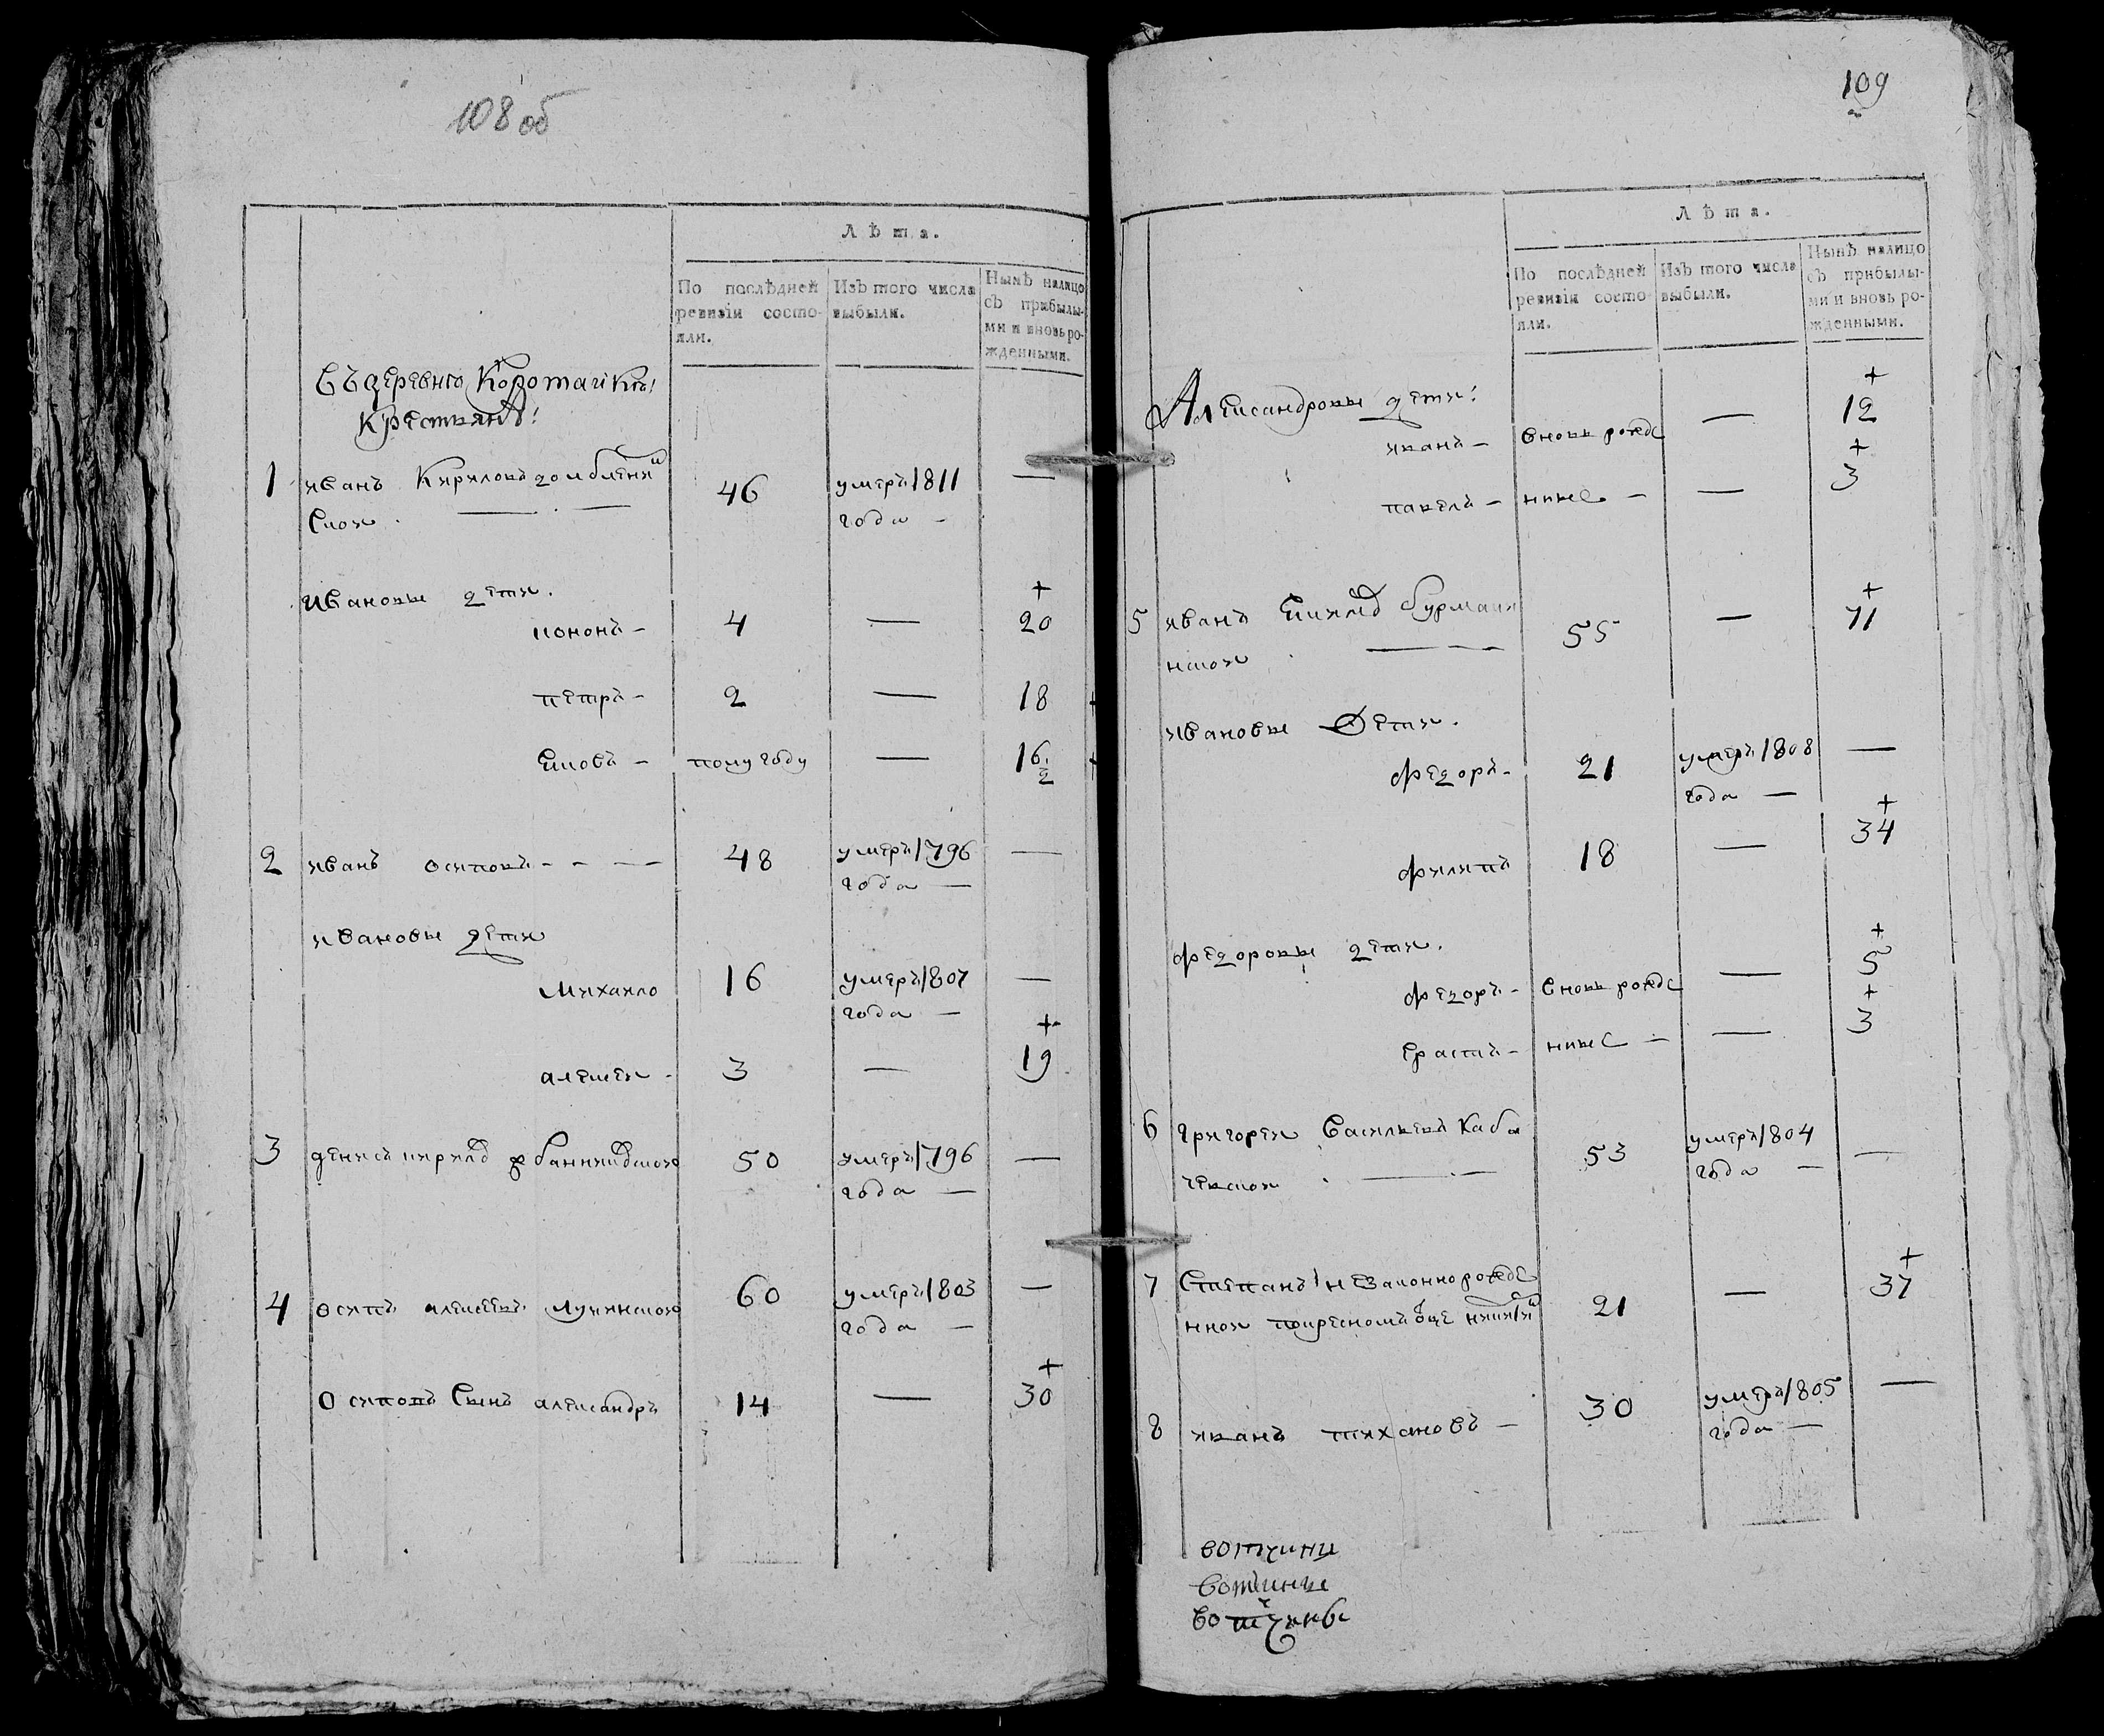 108 об
Лѣта.
По послѣдней
ревизіи состо-
яли.
Изъ того числа
выбыли.
Нынѣ налицо
съ прибылы-
ми и вновь ро-
жденными.
крестьянъ:
1 иванъ Кириловъ 46 умеръ 1811 —
года —
Ивановы дети.
кононъ — 4 — + 20
петръ — 2 — 18
полугоду — 16 1/2
2 иванъ осиповъ - - — 48 умеръ 1796 —
года —
ивановы дети
михаило 16 умеръ 1807 —
года —
алексеи - 3 — + 19
3 денисъ 50 умеръ 1796 —
года —
4 осипъ алексеевъ 60 умеръ 1803 —
года —
Осиповъ Сынъ александръ 14 — + 30
109
Лѣта.
По послѣдней
ревизіи состо-
яли.
Изъ того числа
выбыли.
Нынѣ налицо
съ прибылы-
ми и вновь ро-
жденными.
Александровы дети:
иванъ — вновь рожде — + 12
павелъ — — + 3
5 иванъ 55 — + 71
ивановы Дети.
федоръ — 21 умеръ 1808 —
года —
филипъ 18 — + 34
федоровы дети.
федоръ — вновь рожде — + 5
ерастъ — — + 3
6 григореи Васильевъ Каба 53 умеръ 1804 —
года —
7 Степанъ незаконнорожде 21 — + 37
8 иванъ тихановъ — 30 умеръ 1805 —
года —
вотчины